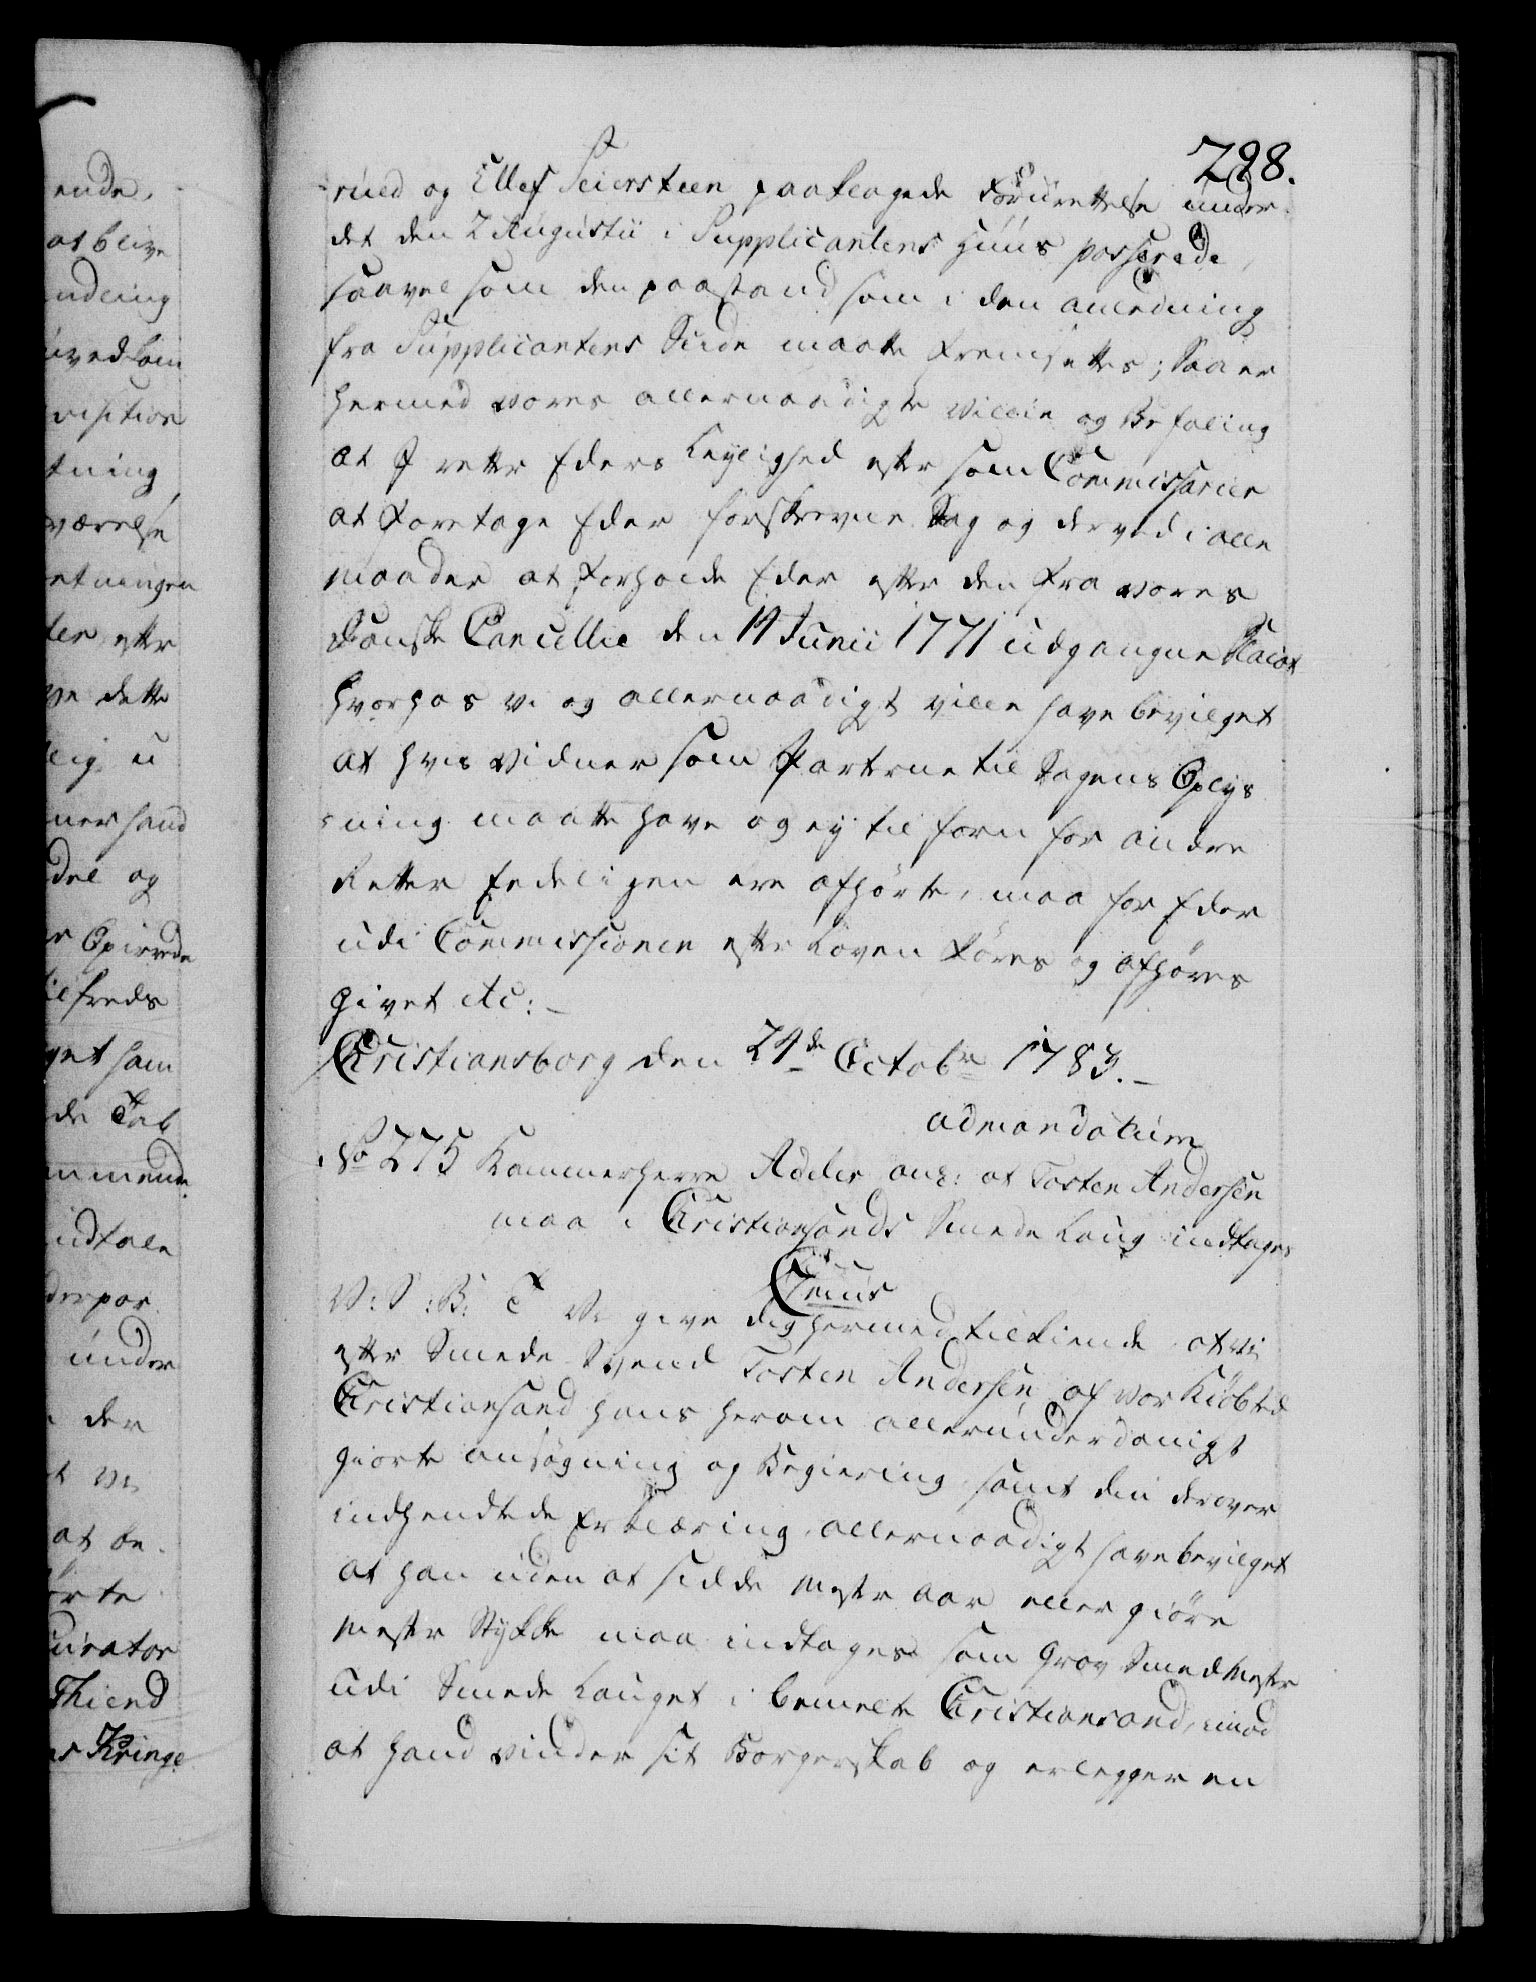 298.
rued og Ellef Seiersteen paaklagede Forurettelse under
det den 2 Augustii i Supplicantens Huus passerede,
saavel som den paastand som i den anledning
fra Supplicantens Siide maatte fremsettes; Saa er
hermed vores allernaadigste Villie og Befaling
at I retter Eders Leylighed efter som Commissarier
at foretage Eder forskrevne Sag og derved i alle
maader at forholde Eder efter den fra vores
Danske Cancellie den 14 Junii 1771 udgangne Placat
hvorhos vi og allernaadigst ville have bevilget
at hvis Vidner som Parterne til Sagens Oplys
-ning maatte have og ey tilforn for andre
Retter Eedeligen ere afhørte, maa for Eder
udi Commissionen efter Loven føres og afhøres
Givet etc:
Christiansborg den 24de Octobr 1783.
ad mandatum
No 275 Kammerherre Adeler ang: at Tosten Andersen
maa i Christiansands Smede Laug indtages
V: S: B: T Vi give dig hermed tilkiende at vi
efter Smede Svend Tosten Andersen af vor Kiøbsted
Christiansand hans herom allerunderdanigst
giorte ansøgning og Begiering samt din derover
indhendtede Erklæring, allernaadigst have bevilget
at han uden at sidde Mester aar eller giøre
Mester Stykke maa indtages som Grov Smed Mester
udi Smede Lauget i bemelte Christiansand, imod
at hand vinder sit Borgerskab og erlegger en
ende,
at blive
ndling
uvedkom
visition
tning
værelse
etningen
ter efter
ve dette
lig u
ner hand
del og
ilfreds
get ham
mmende
indtale
derpar
under
den
at be-
ørte
curator
Thiend
as Kringe